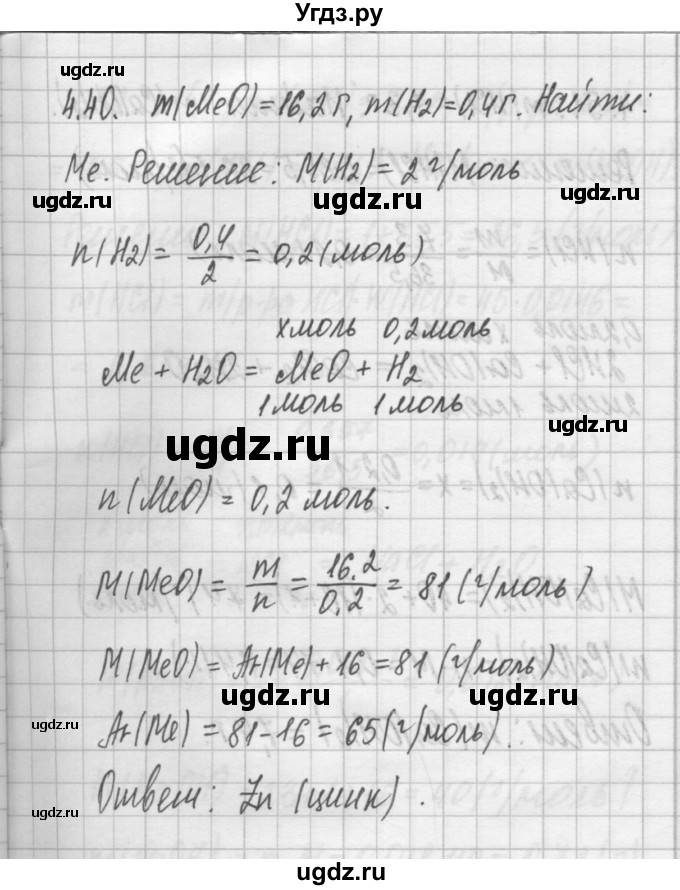 Угдз.ру
ugdz.ru
4.40. m(MeO)=16,2 г, m(H₂)=0,4 г. Найти:
Me. Решение: M(H₂)= 2 г/моль
ugdz.ru ugdz.ru ugdz.ru
n(H₂)= 0,4/2 = 0,2 (моль)
x моль 0,2 моль
Me + H₂O = MeO + H₂
1 моль 1 моль
ugdz.ru
n(MeO) = 0,2 моль.
M(MeO) = m/n = 16.2/0,2 = 81 (г/моль)
M(MeO) = Ar(Me)+16 =81 (г/моль)
ugdz.ru ugdz.ru ugdz.ru
Ar(Me) = 81-16 = 65 (г/моль).
Ответ: Zn (цинк).
ugdz.ru ugdz.ru
ugdz.ru